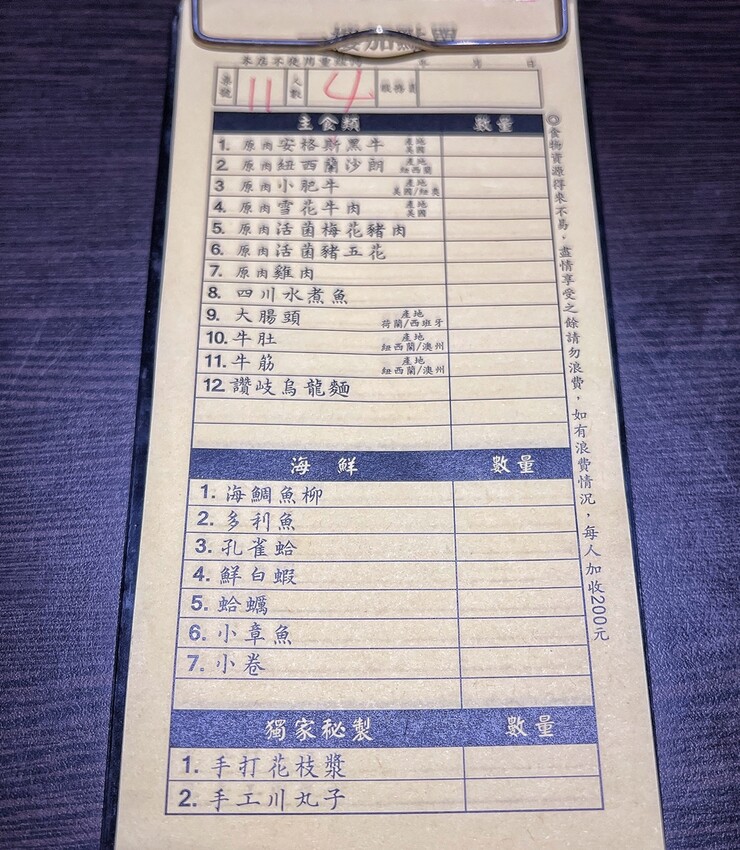 加點單
桌號 11 人數 4 服務員
主食類 數量
1. 原肉安格斯黑牛 產地美國
2. 原肉紐西蘭沙朗 產地紐西蘭
3 原肉小肥牛 產地美國/紐奧
4. 原肉雪花牛肉 產地美國
5. 原肉活菌梅花豬肉
6. 原肉活菌豬五花
7. 原肉雞肉
8. 四川水煮魚
9. 大腸頭 產地荷蘭/西班牙
10. 牛肚 產地紐西蘭/澳州
11. 牛筋 產地紐西蘭/澳州
12. 讚岐烏龍麵
海鮮 數量
1. 海鯛魚柳
2. 多利魚
3. 孔雀蛤
4. 鮮白蝦
5. 蛤蠣
6. 小章魚
7. 小卷
獨家秘製 數量
1. 手打花枝漿
2. 手工川丸子
◎食物資源得來不易，盡情享受之餘請勿浪費，如有浪費情況，每人加收200元